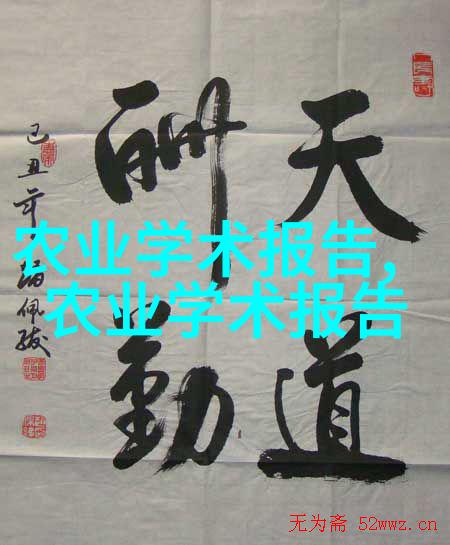 天道
酬勤
己丑年
农业学术报告,
农业学术报告
无为斋 52wwz.cn